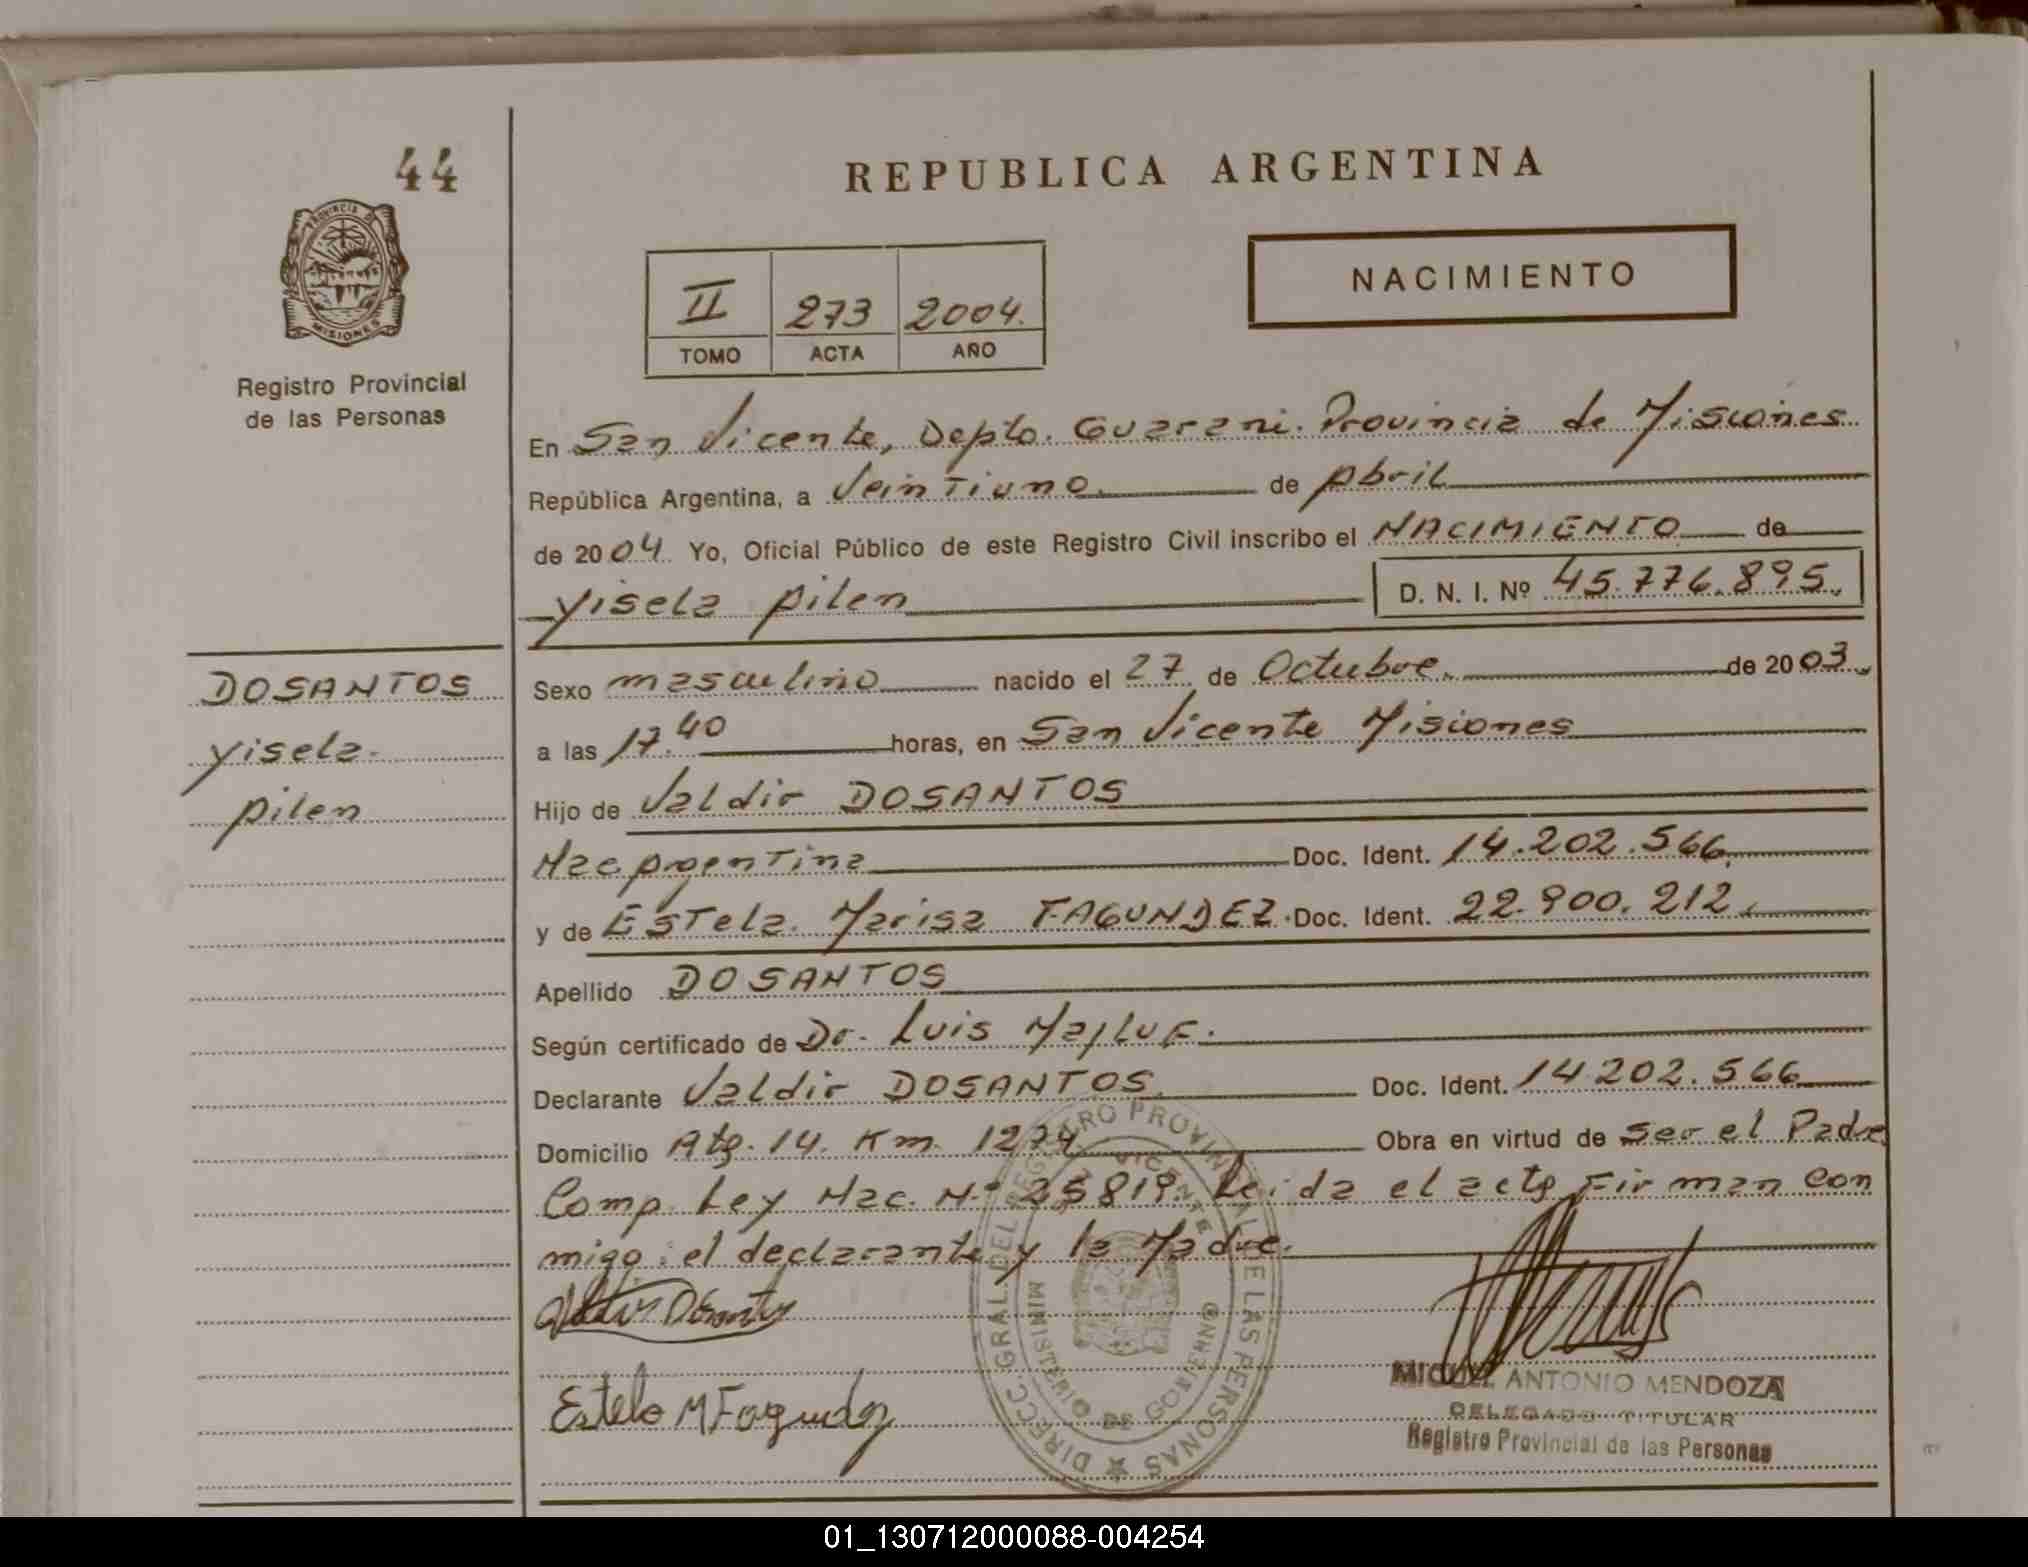 44
REPUBLICA ARGENTINA
PROVINCIA D
MISIONES
Registro Provincial
de las Personas
II 273 2004.
TOMO ACTA AÑO
NACIMIENTO
En San Vicente, Depto. Guarani. Provincia de Misiones
República Argentina, a Veintiuno. de Abril
de 2004 Yo, Oficial Público de este Registro Civil inscribo el NACIMIENTO de
Yisela Ailen D. N. I. Nº 45.776.895.
DOSANTOS
Yisela.
Ailen
Sexo masculino nacido el 27 de Octubre. de 2003.
a las 17.40 horas, en San Vicente Misiones
Hijo de Valdir DOSANTOS
Nac Argentina Doc. Ident. 14.202.566.
y de Estela Marisa FAGUNDEZ. Doc. Ident. 22.900.212.
Apellido DOSANTOS
Según certificado de Dr. Luis
Declarante Valdir DOSANTOS. Doc. Ident. 14 202.566
Domicilio 14. Km. 1274 Obra en virtud de ser el Padre
Comp. Ley Nac. N.º 25819. Leida el acta Firman con
migo: el declarante y la Madre.
Estela M Fagundez
DIRECC. GRAL. DEL REGISTRO PROVINCIAL DE LAS PERSONAS
VICENTE
MINISTERIO DE GOBIERNO
MIGUEL ANTONIO MENDOZA
DELEGADO TITULAR
Registro Provincial de las Personas
01_130712000088-004254